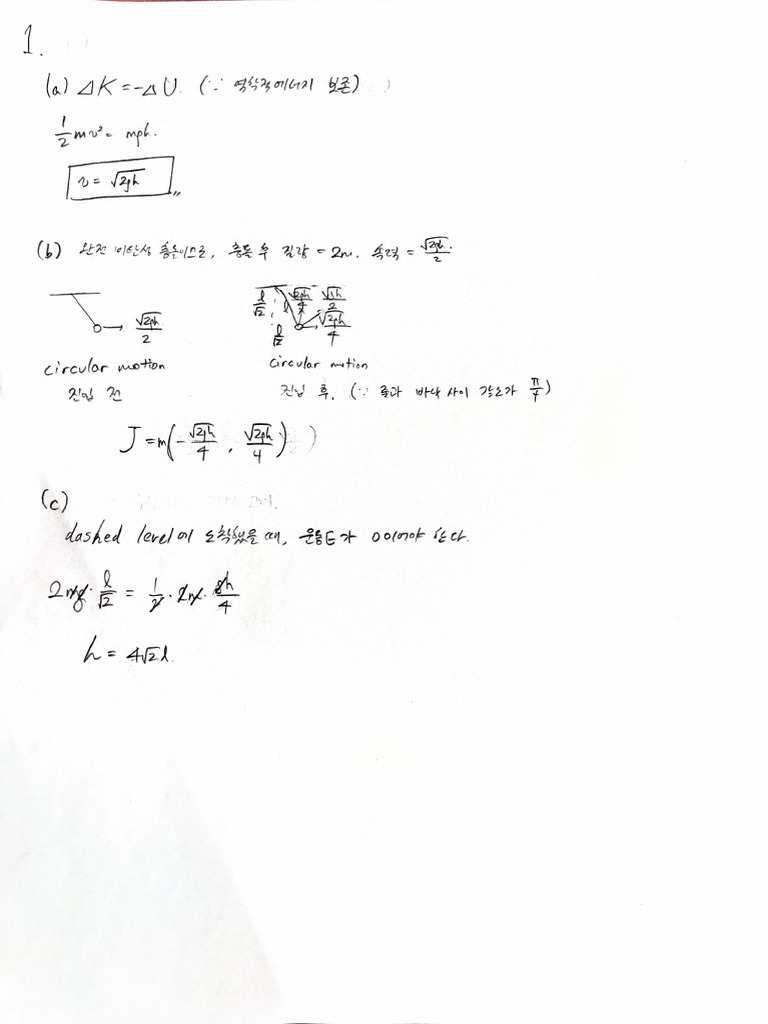 1.
(a) ΔK = -ΔU. (∵ 역학적에너지 보존)
1/2 mv² = mgh.
v = √2gh
(b) 완전 비탄성 충돌이므로, 충돌 후 질량 = 2m. 속력 = √2gh/2.
√2gh/2
l/√2 l √2gh/4 √gh/2
l/√2 √2gh/4
circular motion circular motion
진입 전 진입 후. (∵ 줄과 바닥 사이 각도가 π/4)
J = m(-√2gh/4, √2gh/4)
(c)
dashed level에 도착했을 때, 운동E가 0이어야 한다.
2mg·l/√2 = 1/2·2m·gh/4
h = 4√2l.